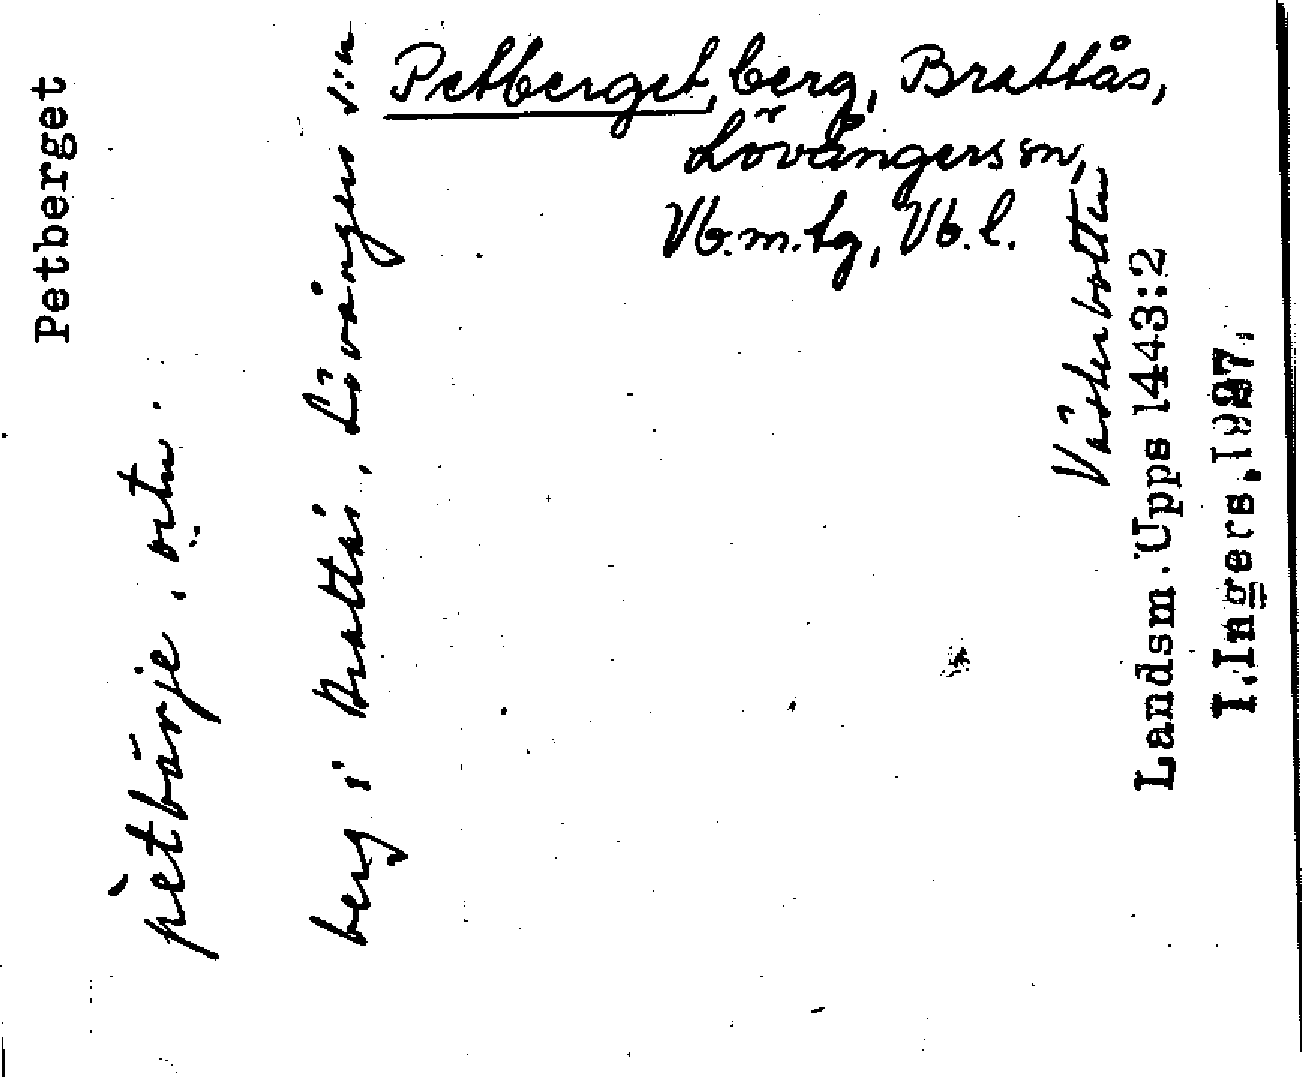 Petberget, berg, Brattås,
Lövångers sn,
Vb.m.tg, Vb.l.
Petberget
pètbärje,
berg i Brattås, Lövångers s:n
Västerbotten
Landsm. Upps 1443:2
I.Ingers,